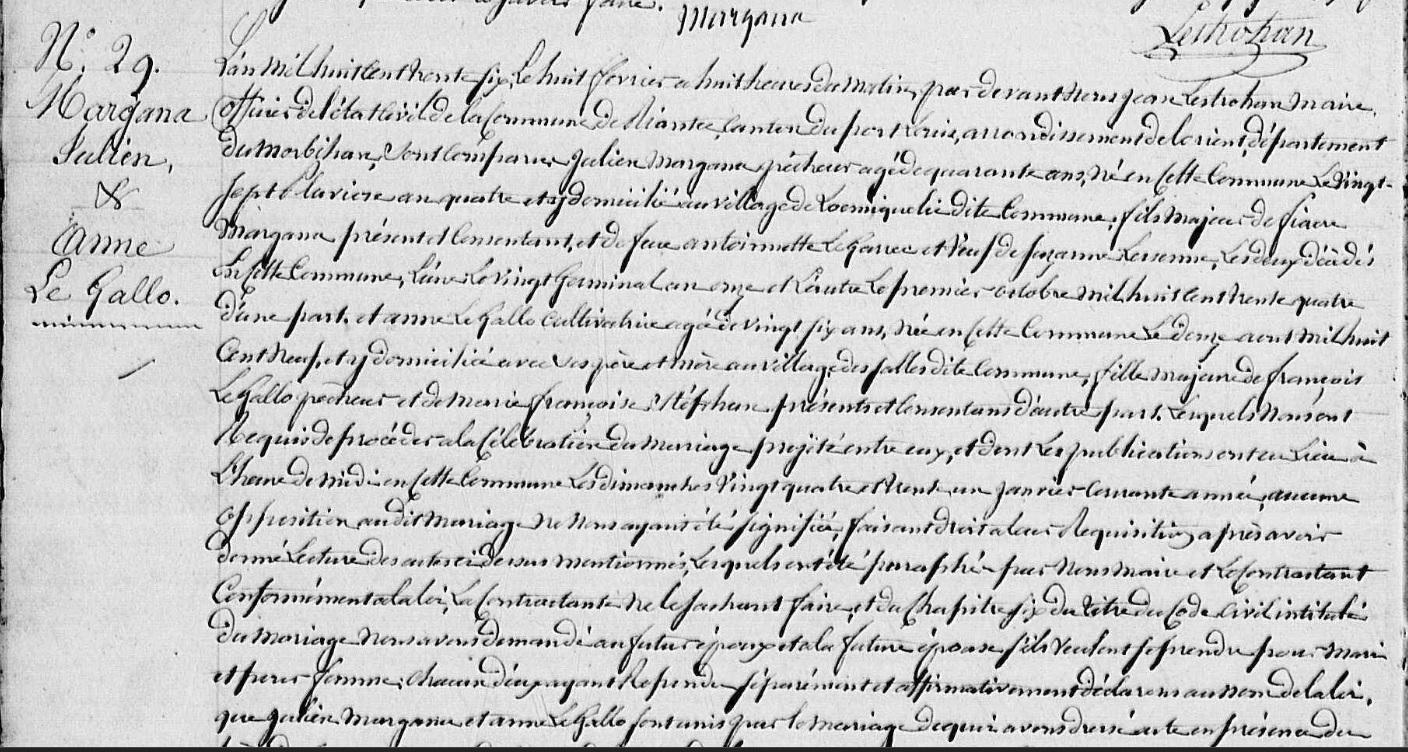 Morgana
Lestrohan
N.° 29.
Margana
Julien,
&
Anne
Le Gallo.
L'an mil huit cent trente six, le huit fevrier a huit heures du matin, par devant nous jean Lestrohan maire
officier de l'état civil de la Commune de Riantec Canton du port Louis, arrondissement de lorient, département
du morbihan, sont Comparus julien Margana pêcheur agé de quarante ans, né en Cette Commune le vingt-
sept pluviose an quatre et y domicilié au village de Locmiquelic dite Commune, fils majeur de fiacre
Margana présent et Consentant, et de feue antoinette Le Garrec et veuf de suzanne, les deux décédés
en cette Commune, l'une le vingt Germinal an onze et l'autre le premier octobre mil huit cent trente quatre
d'une part, et anne Le Gallo Cultivatrice agée de vingt six ans, née en Cette Commune le douze aout mil huit
Cent neuf, et y domiciliée avec ses père et mère au village des salles dite Commune, fille majeure de françois
Le Gallo pêcheur et de marie françoise Stéphan présents et Consentans d'autre part. Lesquels nous ont
Requis de procéder a la Célébration du mariage projeté entre eux, et dont les publications ont eu Lieu à
L'heure de midi en Cette Commune les dimanches vingt quatre et trente un janvier Courante année, aucune
opposition audit mariage ne nous ayant été signifiée, faisant droit a leur Requisition après avoir
donné Lecture des actes ci dessus mentionnés, lesquels ont été paraphés par nous maire et le Contractant
Conformément a la loi, la Contractante ne le sachant faire, et du Chapitre six du titre du Code Civil intitulé
du mariage nous avons demandé au futur époux et a la future épouse s'ils veulent se prendre pour mari
et pour femme, chacun d'eux ayant Répondu séparément et affirmativement déclarons au nom de la loi,
que julien Margana et anne Le Gallo sont unis par le mariage de quoi avons dressé acte en présence de